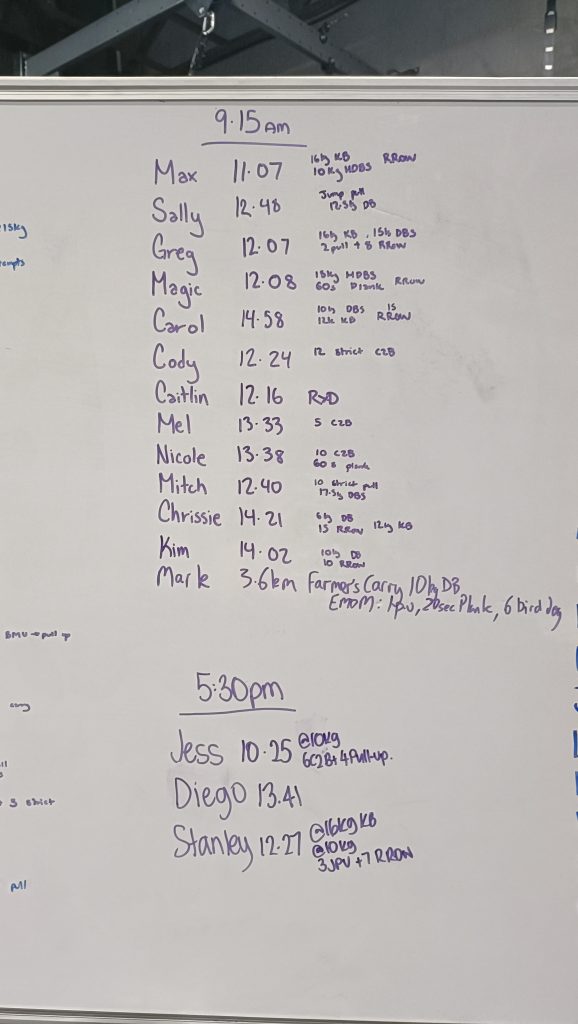 9.15AM
Max 11.07 16kg KB RRow
10kg HDBS
Sally 12.48 Jump pull
12.5kg DB
Greg 12.07 16kg KB, 15kg DBS
2 pull + 8 RRow
Magic 12.08 15kg HDBS
60s Plank RRow
Carol 14.58 10kg DBS 15
12k KB RRow
Cody 12.24 12 strict C2B
Caitlin 12.16 RxD
Mel 13.33 5 C2B
Nicole 13.38 10 C2B
60 s plank
Mitch 12.40 10 strict pull
17.5kg DBS
Chrissie 14.21 6kg DB
15 RRow 12kg KB
Kim 14.02 10kg DB
10 RRow
Mark 3.6km Farmer's Carry 10kg DB
EMOM: 1pu, 20sec Plank, 6 bird dog
5:30pm
Jess 10.25 @10kg
6C2B+4Pull-up.
Diego 13.41
Stanley 12.27 @16kg KB
@10kg
3JPU+7 RROW
15kg
empts
BMU → pull up
3 strict
pull